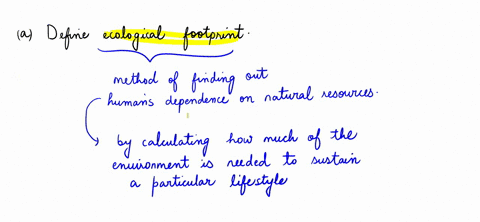 (a) Define ecological footprint.
method of finding out
humans dependence on natural resources.
by calculating how much of the
environment is needed to sustain
a particular lifestyle